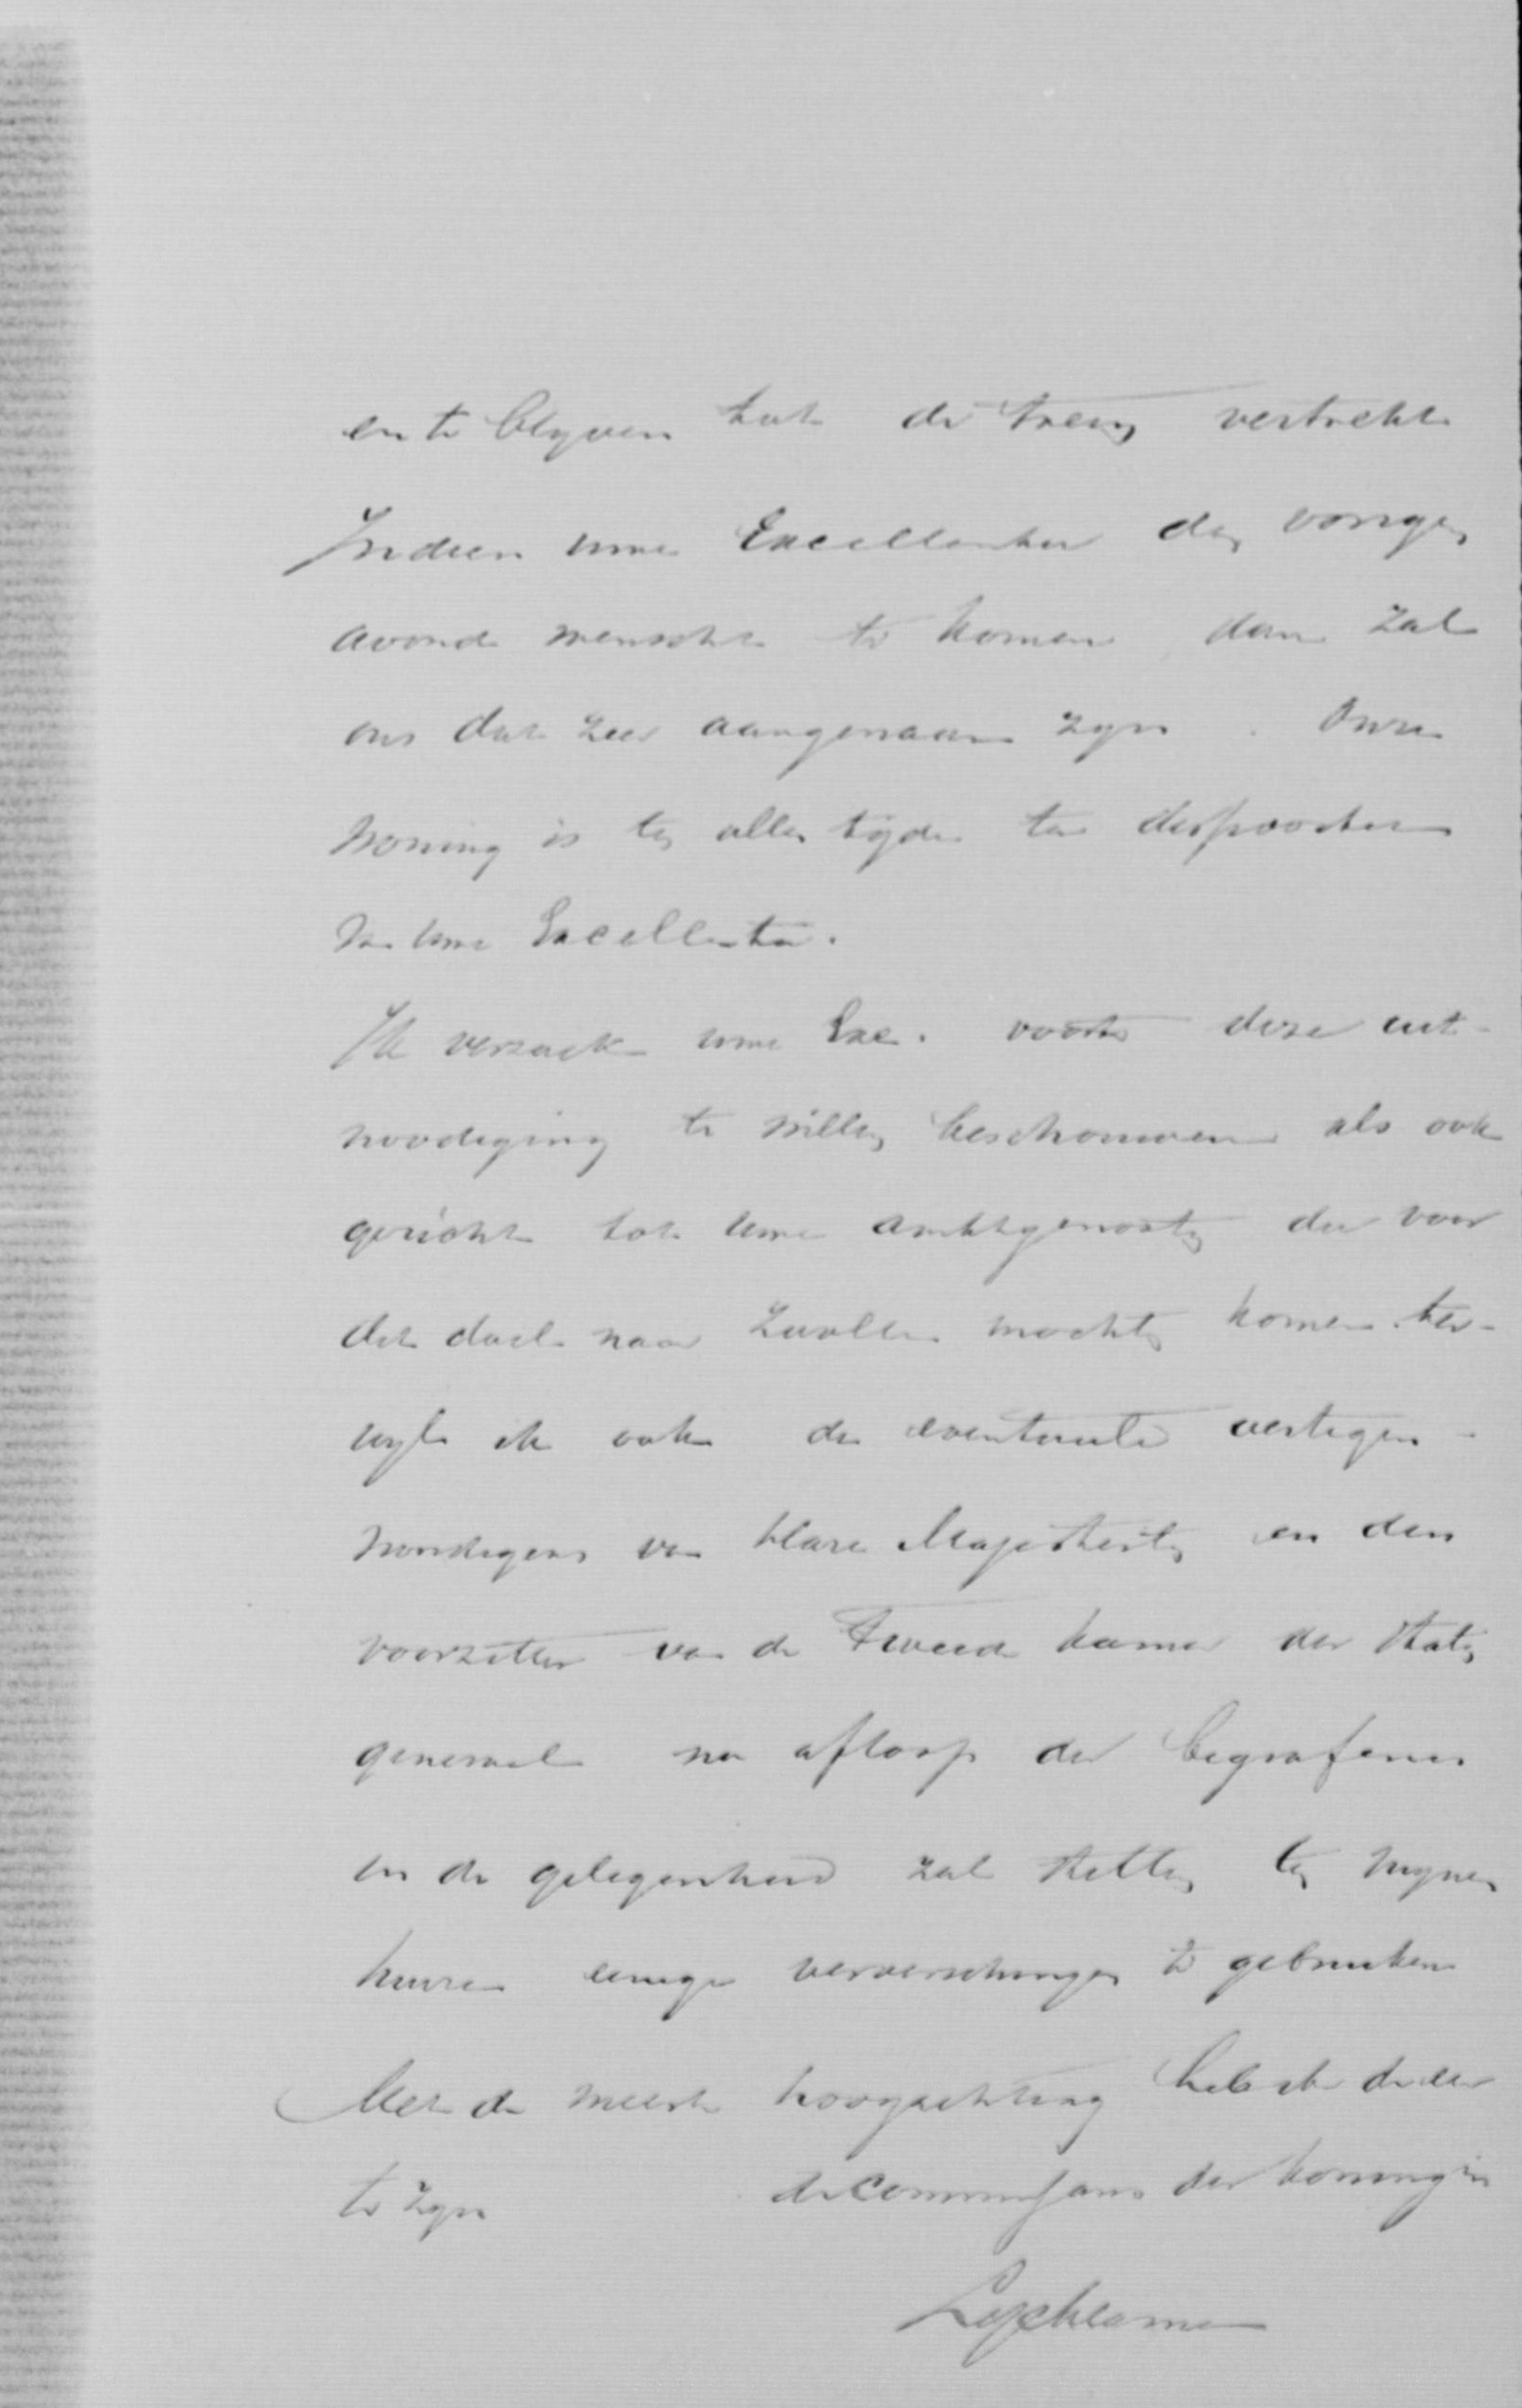 en te blyven tot de trein vertrekt
Indien uwe Excellentie den vorigen
avond wenscht te komen dan zal
ons dat zeer aangenaam zyn. Onze
woning is ten allen tyde ter dispositie
van uwe Excellentie.
Ik verzoek uwe Exc. voorts deze uit-
noodiging te willen beschouwen als ook
gericht tot uwe ambtgenooten die voor
dit doel naar Zwolle mochten komen ter-
wyl ik ook de eventueele vertegen-
woordigers van Hare Majesteiten en den
voorzitter van de Tweede kamer der Staten
generaal na afloop der begrafenis
in de gelegenheid zal stellen ten mynen
huize eenige ververschingen te gebruiken
Met de meeste hoogachting heb ik de eer
te zyn de Commissaris der koningin
Lycklama